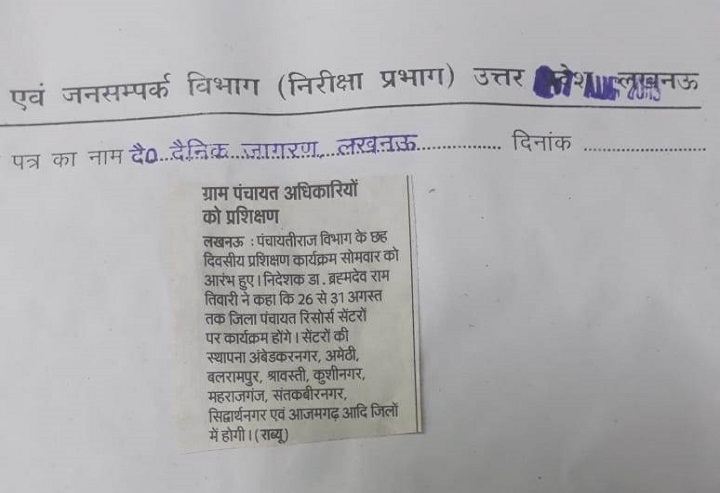 एवं जनसम्पर्क विभाग (निरीक्षा प्रभाग) उत्तर लखनऊ
पत्र का नाम दै0 दैनिक जागरण, लखनऊ दिनांक
ग्राम पंचायत अधिकारियों
को प्रशिक्षण
लखनऊ : पंचायतीराज विभाग के छह
दिवसीय प्रशिक्षण कार्यक्रम सोमवार को
आरंभ हुए। निदेशक डा. ब्रह्मदेव राम
तिवारी ने कहा कि 26 से 31 अगस्त
तक जिला पंचायत रिसोर्स सेंटरों
पर कार्यक्रम होंगे। सेंटरों की
स्थापना अंबेडकरनगर, अमेठी,
बलरामपुर, श्रावस्ती, कुशीनगर,
महराजगंज, संतकबीरनगर,
सिद्वार्थनगर एवं आजमगढ़ आदि जिलों
में होगी। (राब्यू)